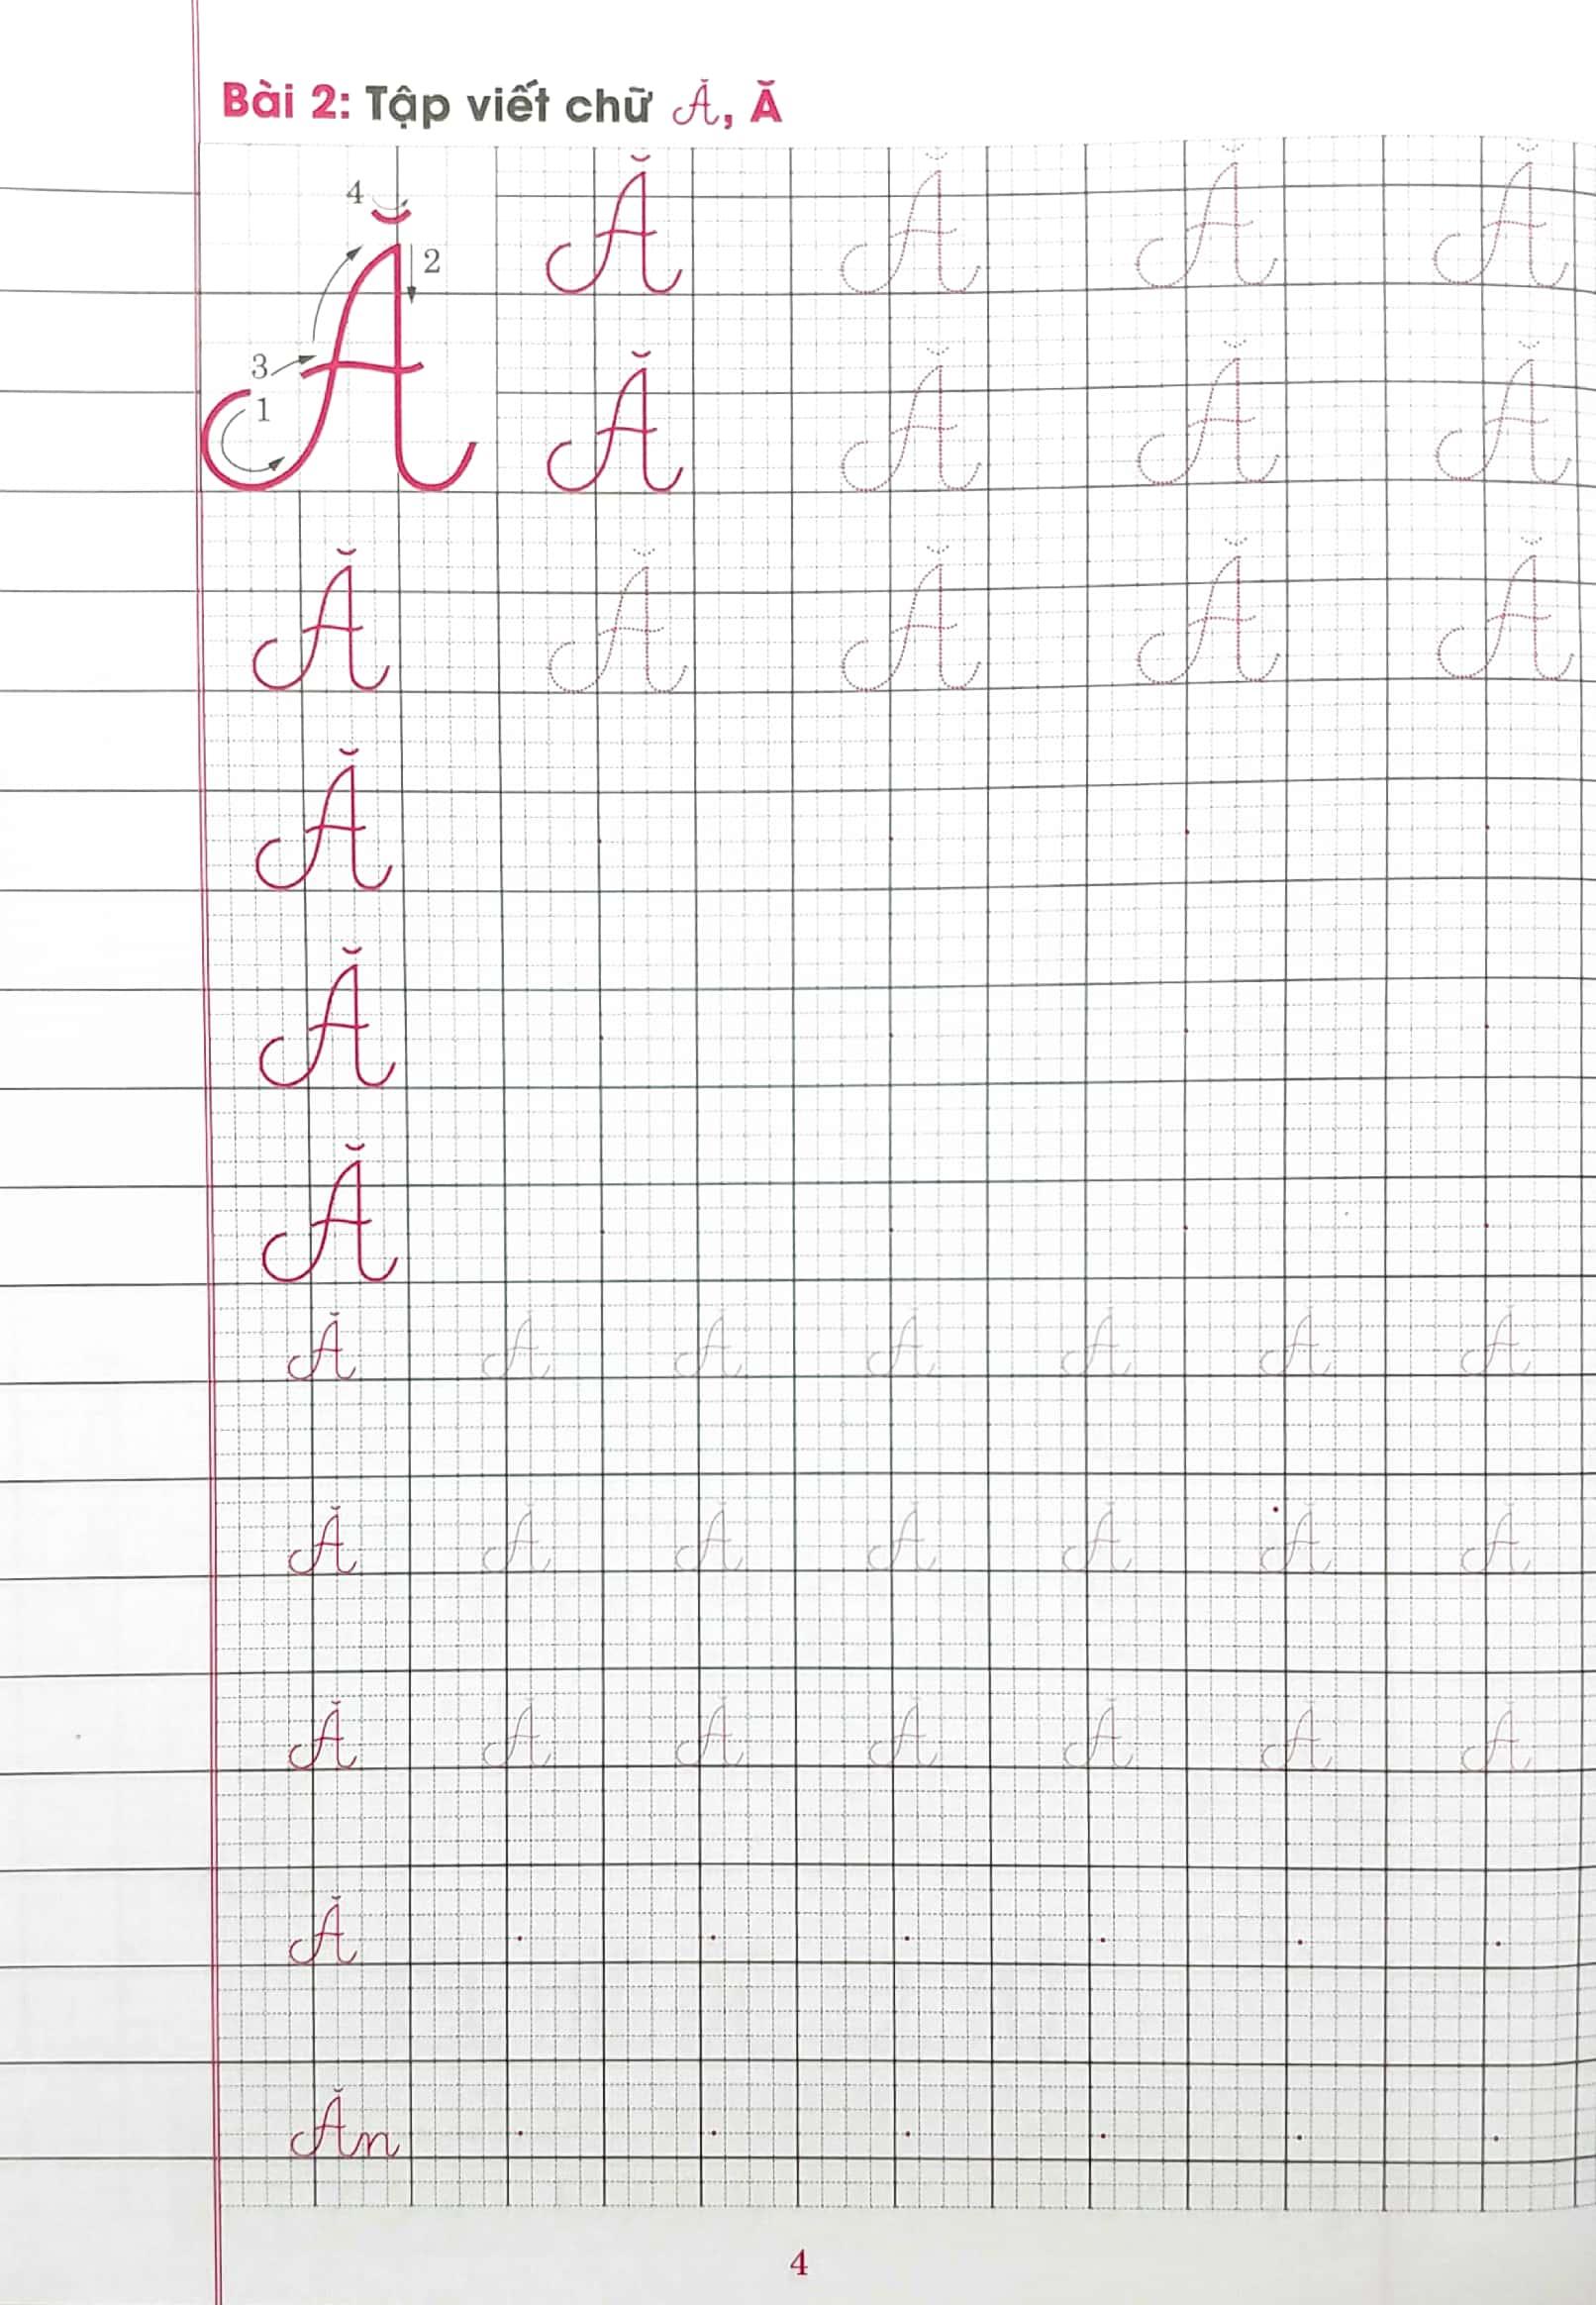 Bài 2: Tập viết chữ Ă, Ă
4
2
3
1
Ă
Ă Ă Ă Ă
Ă Ă Ă Ă
Ă Ă Ă Ă Ă
Ă
Ă
Ă
Ă Ă Ă Ă Ă Ă Ă
Ă Ă Ă Ă Ă Ă Ă
Ă Ă Ă Ă Ă Ă Ă
Ă
Ăn
4